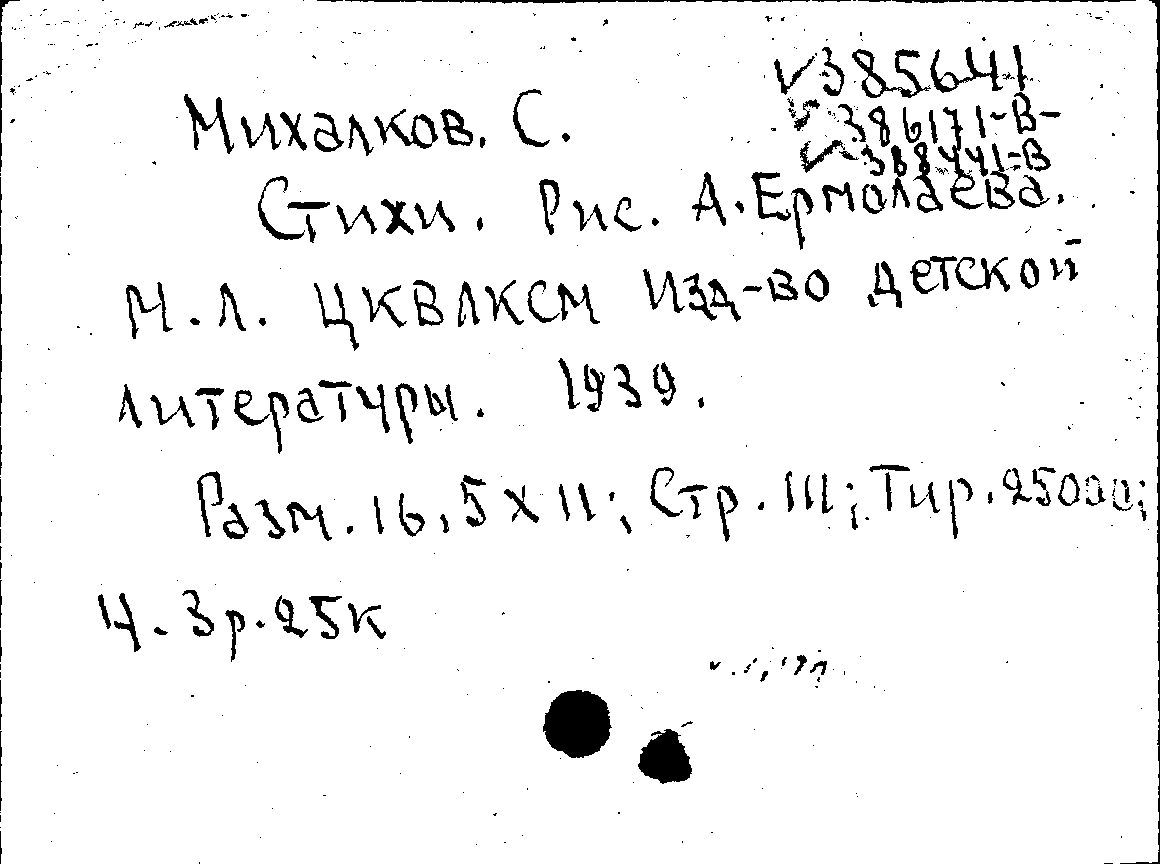 385641
Михалков. С.
386171-В-
388441-В
Стихи. Рис. А. Ермолаева.
М. Л. ЦКВЛКСМ Изд-во детской
литературы. 1939.
Разм. 16,5 х 11; Стр. 111; Тир. 25000;
Ц. 3р. 25к